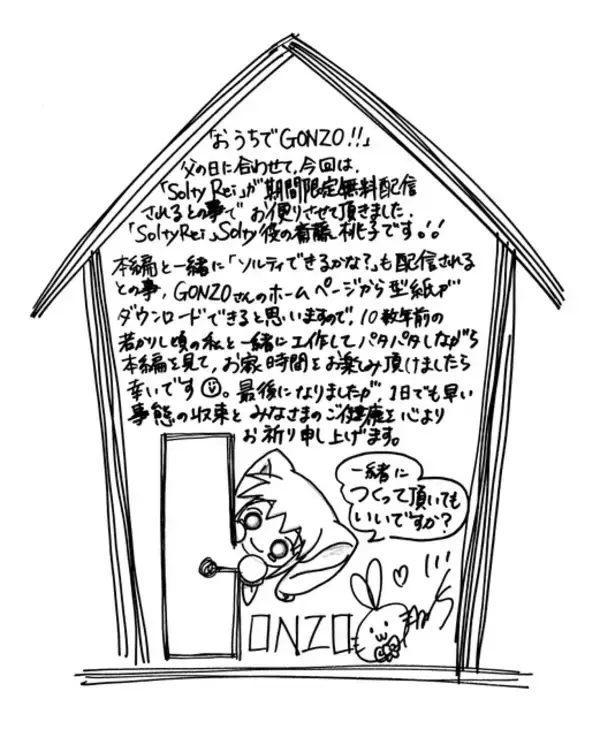 「おうちでGONZO!!」
父の日に合わせて、今回は、
「Solty Rei」が期間限定無料配信
されるとの事で お便りさせて頂きました。
「SoltyRei」Solty役の斎藤 桃子です!!
本編と一緒に「ソルティできるかな?」も配信される
との事、GONZOさんのホームページから型紙が
ダウンロードできると思いますので、10数年前の
若かりし頃の私と一緒に工作してパタパタしながら
本編を見て、お家時間をお楽しみ頂けましたら
幸いです。最後になりましたが、1日でも早い
事態の収束とみなさまのご健康を心より
お祈り申し上げます。
一緒に
つくって頂いても
いいですか?
ONZO